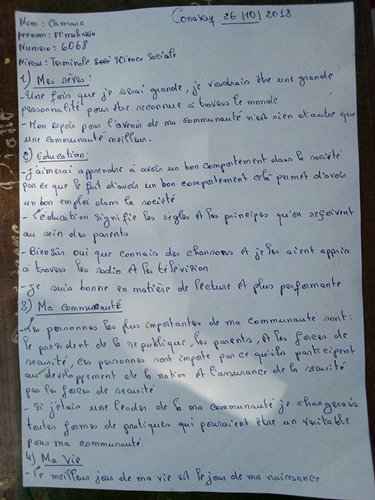 Nom : Camara
Conakry 26/10/2018
prenom : M'mahawa
Numero : 6068
Niveau : Terminale Science Sociale
1) Mes rêves :
- Une fois que je serai grande, je voudrais être une grande
personnalité pour être reconnue à travers le monde
- Mon espoir pour l'avenir de ma communauté n'est rien d'autre que
une communauté meilleur.
2) Education :
- J'aimerai apprendre à avoir un bon comportement dans la société
par ce que le fait d'avoir un bon comportement celà permet d'avoir
un bon emploi dans la société
- L'éducation signifie les règles et les principes qu'on reçoivent
au sein des parents
- Biensûr oui que connais des chansons et je les aient appris
à travers les radio et les télévision
- Je suis bonne en matière de lecture et plus performante
3) Ma Communauté
- Les personnes les plus importantes de ma communauté sont :
le president de la republique, les parents, et les forces de
securité, ces personnes sont importe par ce qu'ils participent
au developpement de la nation et l'assurance de la securité
par les forces de securité
- Si j'etais une leader de la ma communauté je changerais
toutes formes de pratiques qui pouraient être un veritable
pour ma communauté
4) Ma Vie
- Le meilleur jour de ma vie est le jour de ma naissance